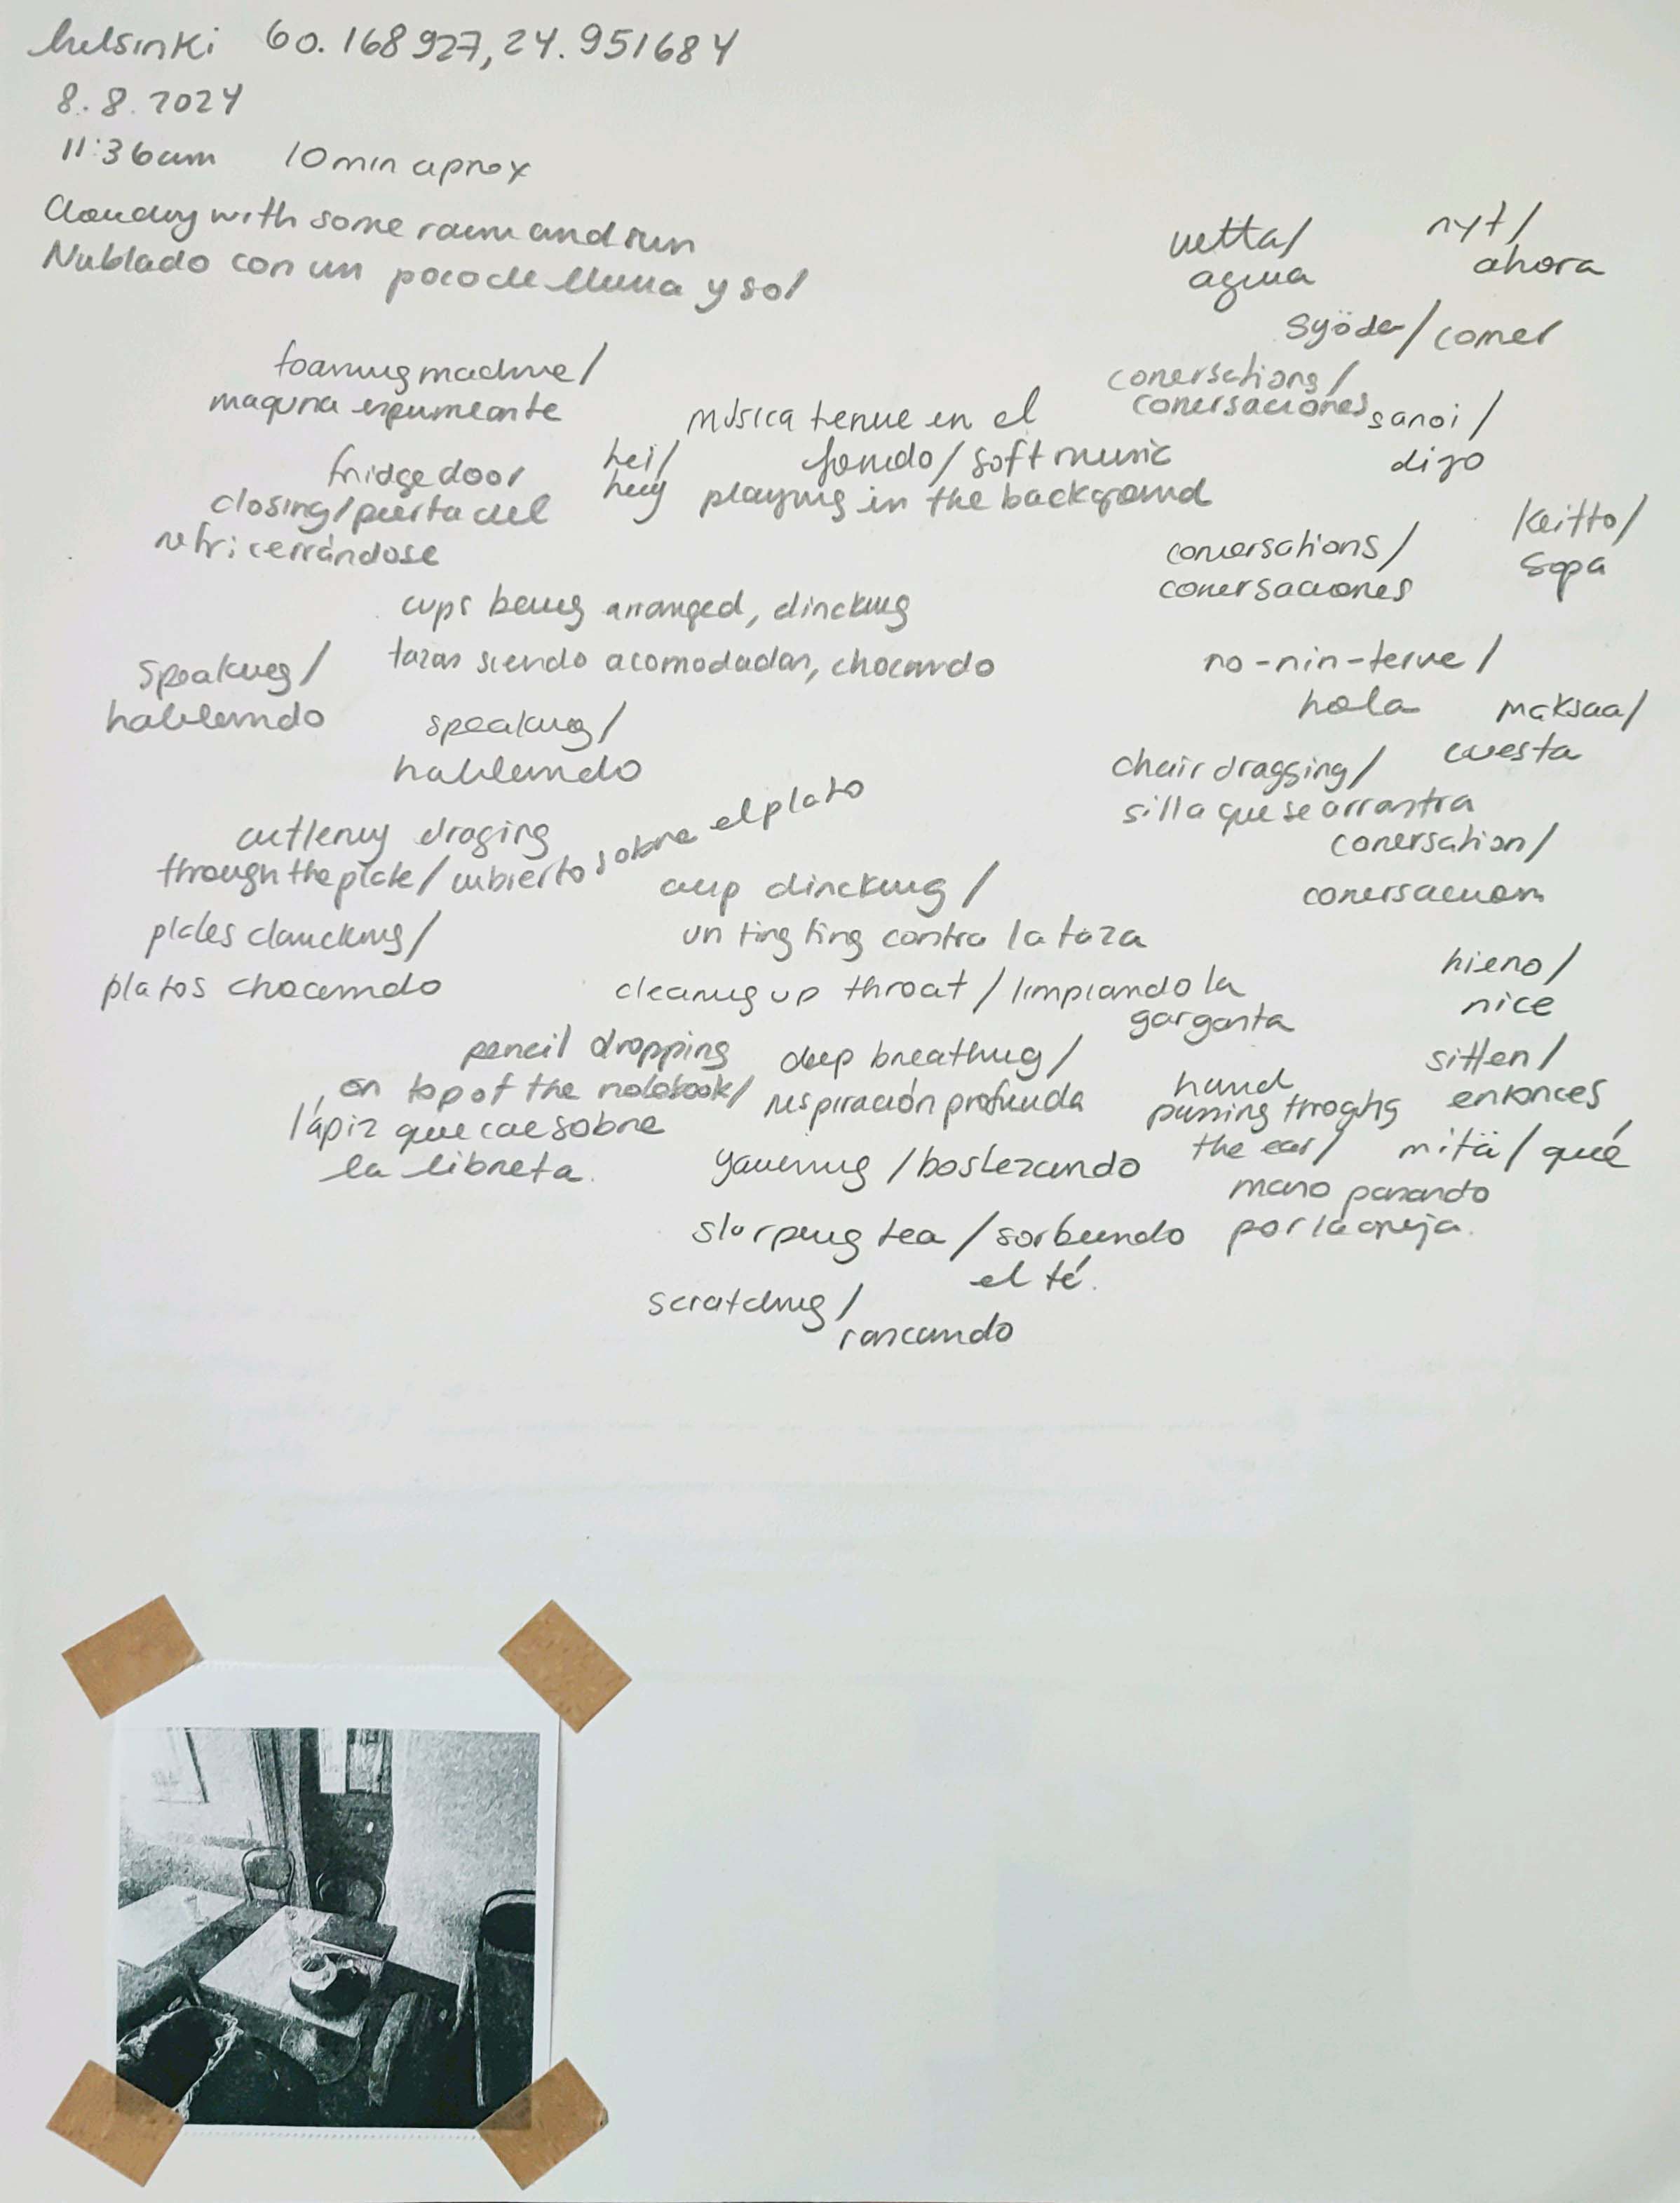 helsinki 60.168927, 24.951684
8.8.2024
11:36am 10min aprox
Cloudy with some rain and sun
Nublado con un poco de lluvia y sol
vetta/
agua
nyt/
ahora
syödä/comer
foaming machine/
maquina espumeante
conersations/
conersaciones
sanoi/
digo
música tenue en el
fondo/soft music
playing in the background
hei/
hey
fridge door
closing/puerta del
refri cerrándose
conversations/
conersaciones
keitto/
sopa
cups being arranged, clincking
tazas siendo acomodadas, chocando
speaking/
hablando
speaking/
hablando
no-nin-terve/
hola
maksaa/
cuesta
chair dragging/
silla que se arrastra
conersation/
conersacion
cutlery draging
through the plate/cubierto sobre el plato
cup clincking/
un ting ting contra la taza
plates clancking/
platos chocando
cleaning up throat/limpiando la
garganta
hieno/
nice
pencil dropping
on top of the notebook/
lápiz que cae sobre
la libreta.
deep breathing/
respiración profunda
hand
passing throghg
the ear/
mano pasando
por la oreja.
sitten/
entonces
mitä/qué
yawning/bostezando
slurping tea/sorbiendo
el té.
scratching/
rascando